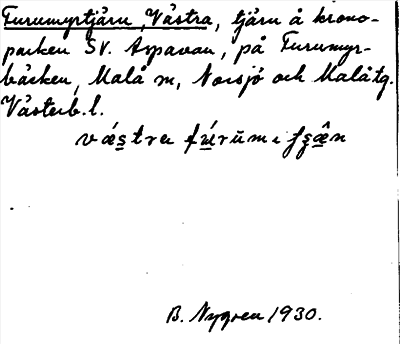 Furumyrtjärn, Västra, tjärn å krono-
parken SV. Aspavan, på Furumyr-
bäcken, Malå sn, Norsjö och Malå tg.
Västerb. l.
västra
B. Nygren 1930.